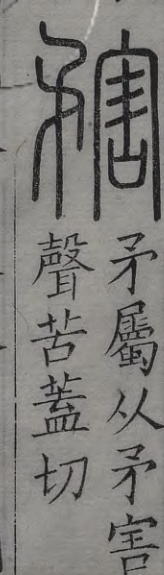 𥎆
矛屬从矛害
聲苦蓋切